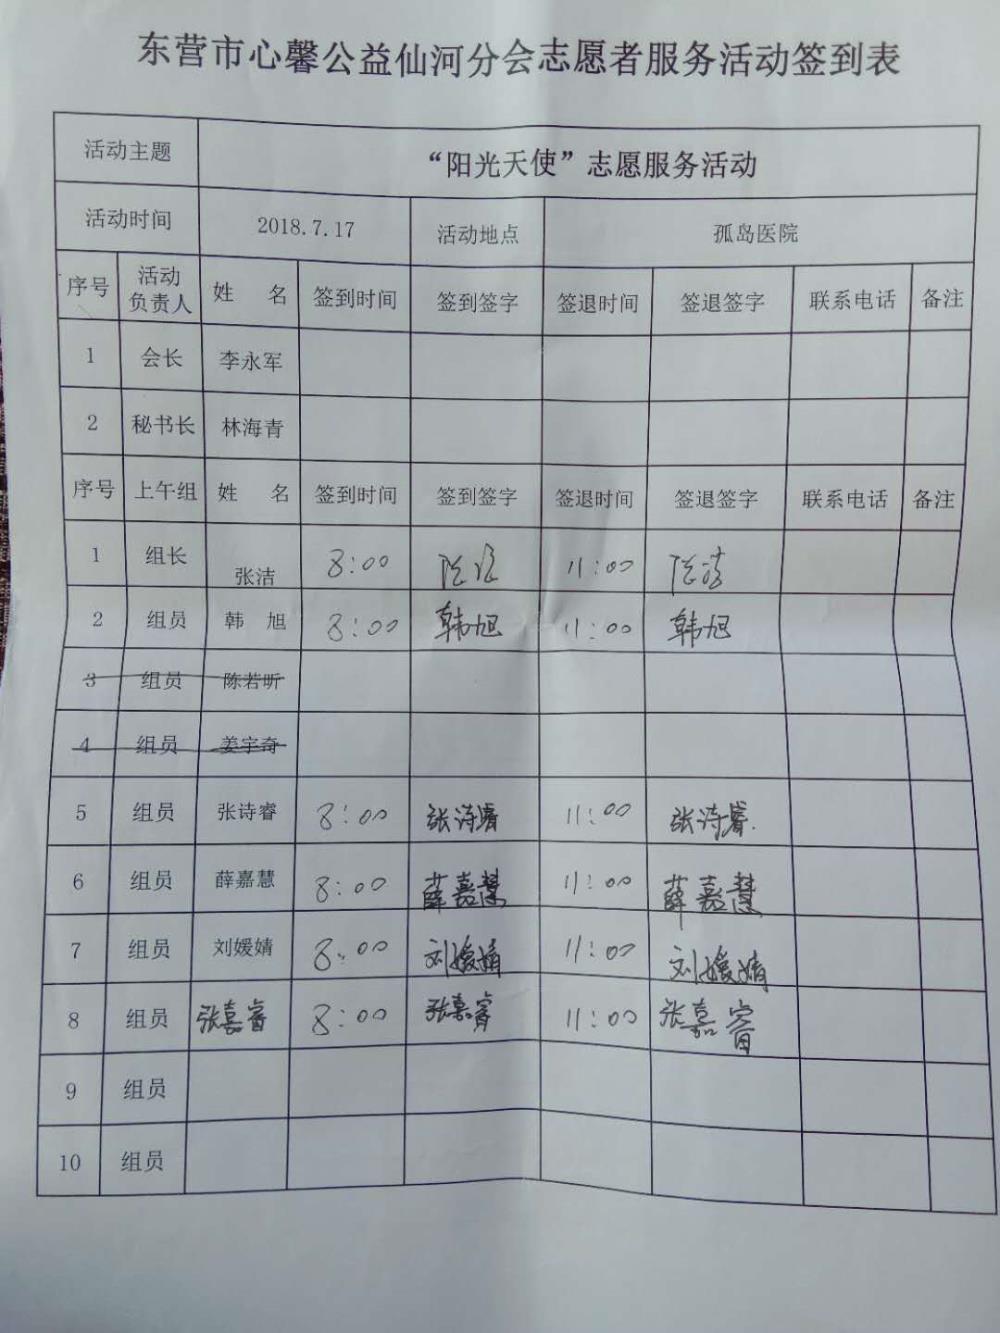 东营市心馨公益仙河分会志愿者服务活动签到表
活动主题 “阳光天使”志愿服务活动
活动时间 2018.7.17 活动地点 孤岛医院
序号 活动负责人 姓 名 签到时间 签到签字 签退时间 签退签字 联系电话 备注
1 会长 李永军
2 秘书长 林海青
序号 上午组 姓 名 签到时间 签到签字 签退时间 签退签字 联系电话 备注
1 组长 张洁 8:00 11:00
2 组员 韩 旭 8:00 韩旭 11:00 韩旭
3 组员 陈若昕
4 组员 姜宇奇
5 组员 张诗睿 8:00 张诗睿 11:00 张诗睿.
6 组员 薛嘉慧 8:00 薛嘉慧 11:00 薛嘉慧
7 组员 刘媛婧 8:00 刘媛婧 11:00 刘媛婧
8 组员 张嘉睿 8:00 张嘉睿 11:00 张嘉睿
9 组员
10 组员